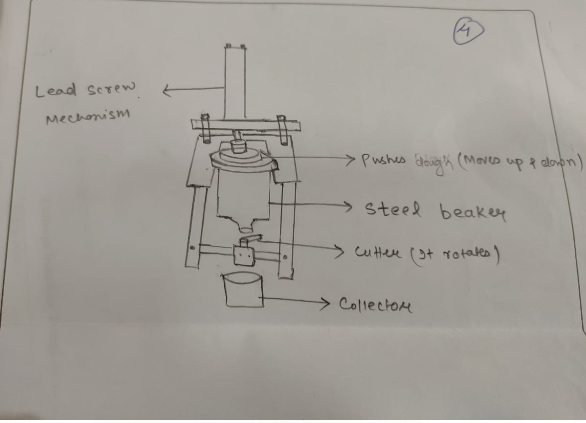 4
Lead screw
Mechanism
Pushes dough (Moves up & down)
Steel beaker
Cutter (It rotates)
Collector